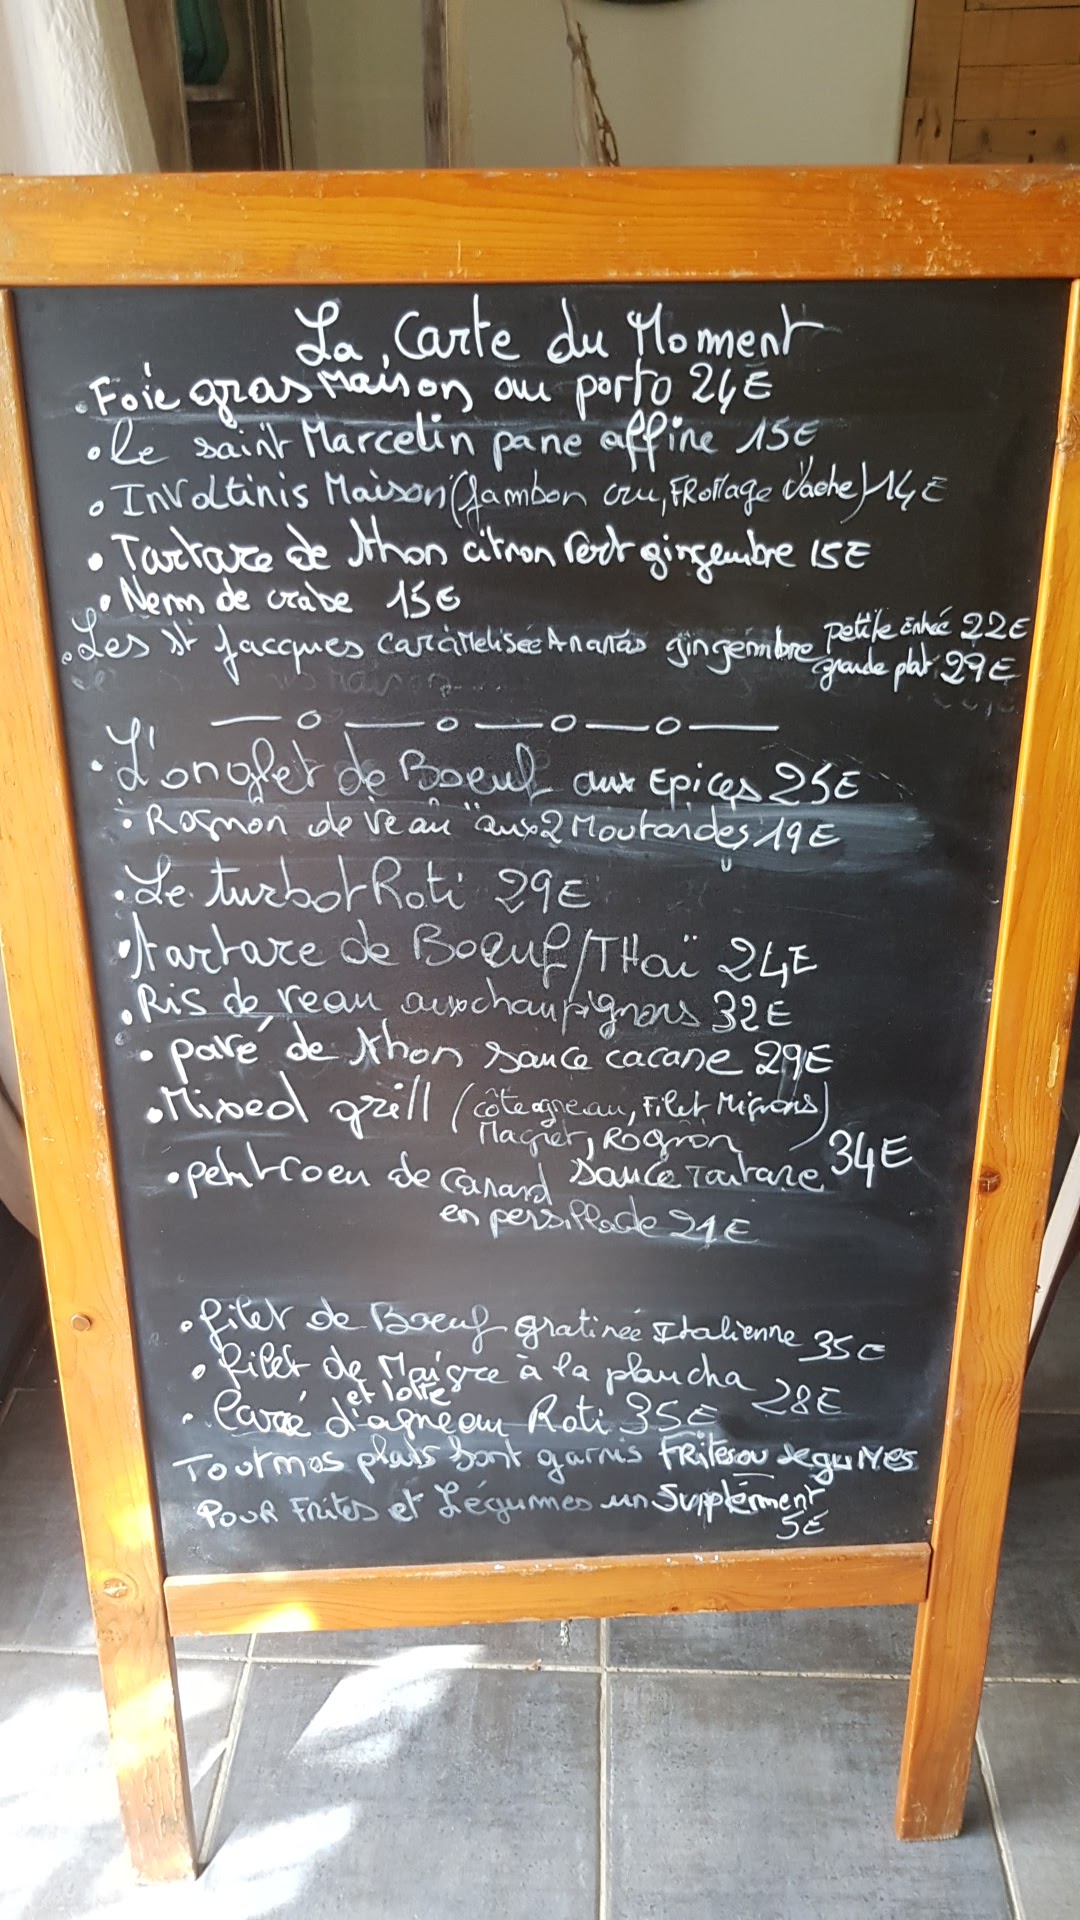 La Carte du Moment
• Foie gras Maison au porto 24E
• Le saint Marcelin pane affine 15E
• Involtinis Maison (Jambon cru, FRomage Vache) 14E
• Tartare de thon citron vert gingembre 15E
• Nem de crabe 15E
• Les St Jacques caramelisée Ananas gingembre petite Entrée 22E
grande plat 29E
• L'onglet de Boeuf aux Epices 25E
• Rognon de veau aux 2 Moutardes 19E
• Le turbot Roti 29E
• tartare de Boeuf/THaï 24E
• Ris de veau aux champignons 32E
• pavé de thon sauce cacane 29E
• Mixed grill (côte agneau, Filet Mignons)
Magret, Rognon 34E
• petit coeu de canard sauce Tartare
en persillade 21E
• filet de Boeuf gratinée Italienne 35E
• filet de Maigre à la plancha 28E
et lotte
• Carré d'agneau Roti 35E
Tout nos plats sont garnis FRites ou legumes
POUR Frites et Légumes un Supplément
5E